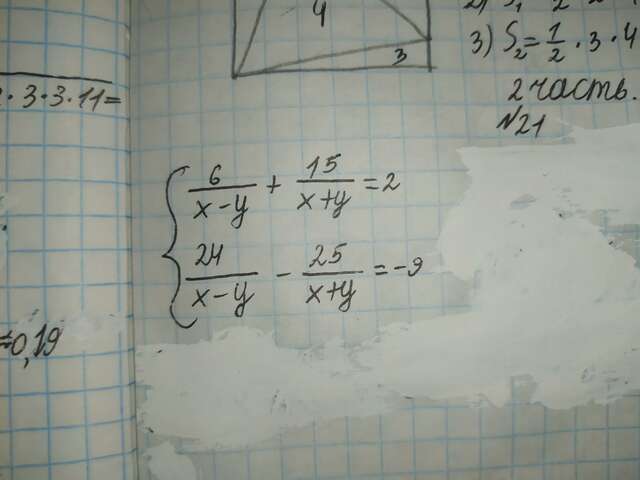 4
3
· 3 · 3 · 11 =
3) S₂ = 1/2 · 3 · 4
2 часть.
№21
{ 6/(x-y) + 15/(x+y) = 2
24/(x-y) - 25/(x+y) = -9
≈0,19